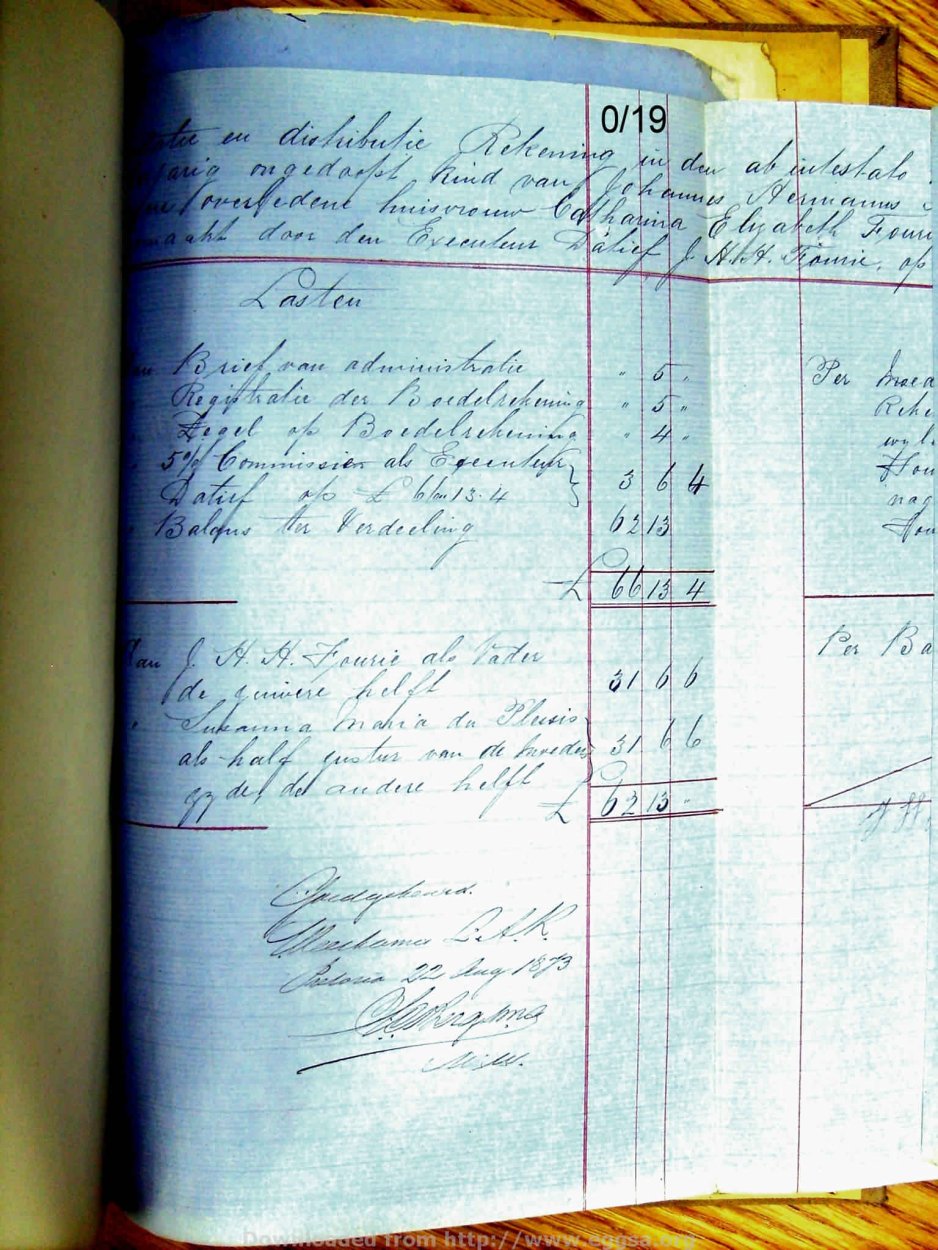 0/19
en distributie Rekening in den ab intestato
jarig ongedoopt kind van Johannes Hermanus
overledene huisvrouw Catharina Elizabeth Fouri
maakt door den Executeur Datief J. H. H. Fourie, op
Lasten
Brief van administratie " 5 "
Registratie der Boedelrekening " 5 "
Zegel op Boedelrekening " 4 "
5% Commissien als Executeur
Datief op £ 66.13.4 3 6 4
Balans ter Verdeeling 62 13
£ 66 13 4
Aan J. H. H. Fourie als Vader
de zuivere helft 31 6 6
" Susanna Maria du Plesis
als half zuster van de moeders 31 6 6
zyde, de andere helft
£ 62 13 "
Per Moed
Reke
Per Ba
Goedgekeurd.
Weeskamer Z.A.R.
Pretoria 22 Aug 1873
Downloaded from http://www.eggsa.org